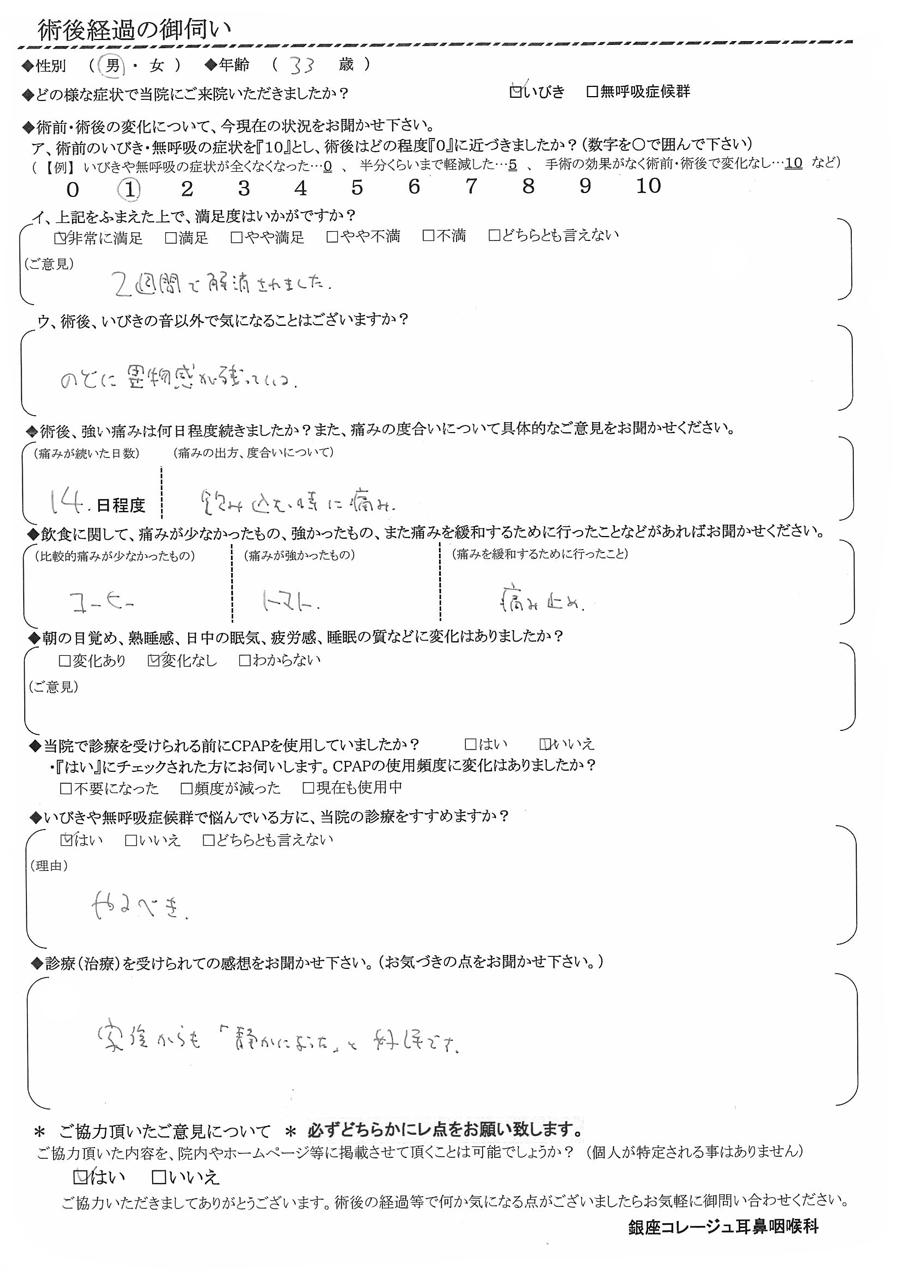 術後経過の御伺い
◆性別 (男・女) ◆年齢 (33 歳)
◆どの様な症状で当院にご来院いただきましたか? ☑いびき □無呼吸症候群
◆術前・術後の変化について、今現在の状況をお聞かせ下さい。
ア、術前のいびき・無呼吸の症状を『10』とし、術後はどの程度『0』に近づきましたか?(数字を〇で囲んで下さい)
(【例】いびきや無呼吸の症状が全くなくなった…0 、 半分くらいまで軽減した…5 、 手術の効果がなく術前・術後で変化なし…10 など)
0 1 2 3 4 5 6 7 8 9 10
イ、上記をふまえた上で、満足度はいかがですか?
☑非常に満足 □満足 □やや満足 □やや不満 □不満 □どちらとも言えない
(ご意見)
2週間で解消されました.
ウ、術後、いびきの音以外で気になることはございますか?
のどに異物感が残っている.
◆術後、強い痛みは何日程度続きましたか?また、痛みの度合いについて具体的なご意見をお聞かせください。
(痛みが続いた日数) (痛みの出方、度合いについて)
14.日程度 飲み込む時に痛み.
◆飲食に関して、痛みが少なかったもの、強かったもの、また痛みを緩和するために行ったことなどがあればお聞かせください。
(比較的痛みが少なかったもの) (痛みが強かったもの) (痛みを緩和するために行ったこと)
コーヒー トマト. 痛み止め.
◆朝の目覚め、熟睡感、日中の眠気、疲労感、睡眠の質などに変化はありましたか?
□変化あり ☑変化なし □わからない
(ご意見)
◆当院で診療を受けられる前にCPAPを使用していましたか? □はい ☑いいえ
・『はい』にチェックされた方にお伺いします。CPAPの使用頻度に変化はありましたか?
□不要になった □頻度が減った □現在も使用中
◆いびきや無呼吸症候群で悩んでいる方に、当院の診療をすすめますか?
☑はい □いいえ □どちらとも言えない
(理由)
やるべき.
◆診療(治療)を受けられての感想をお聞かせ下さい。(お気づきの点をお聞かせ下さい。)
からも「静かになった」と好評です.
* ご協力頂いたご意見について * 必ずどちらかにレ点をお願い致します。
ご協力頂いた内容を、院内やホームページ等に掲載させて頂くことは可能でしょうか? (個人が特定される事はありません)
☑はい □いいえ
ご協力いただきましてありがとうございます。術後の経過等で何か気になる点がございましたらお気軽に御問い合わせください。
銀座コレージュ耳鼻咽喉科